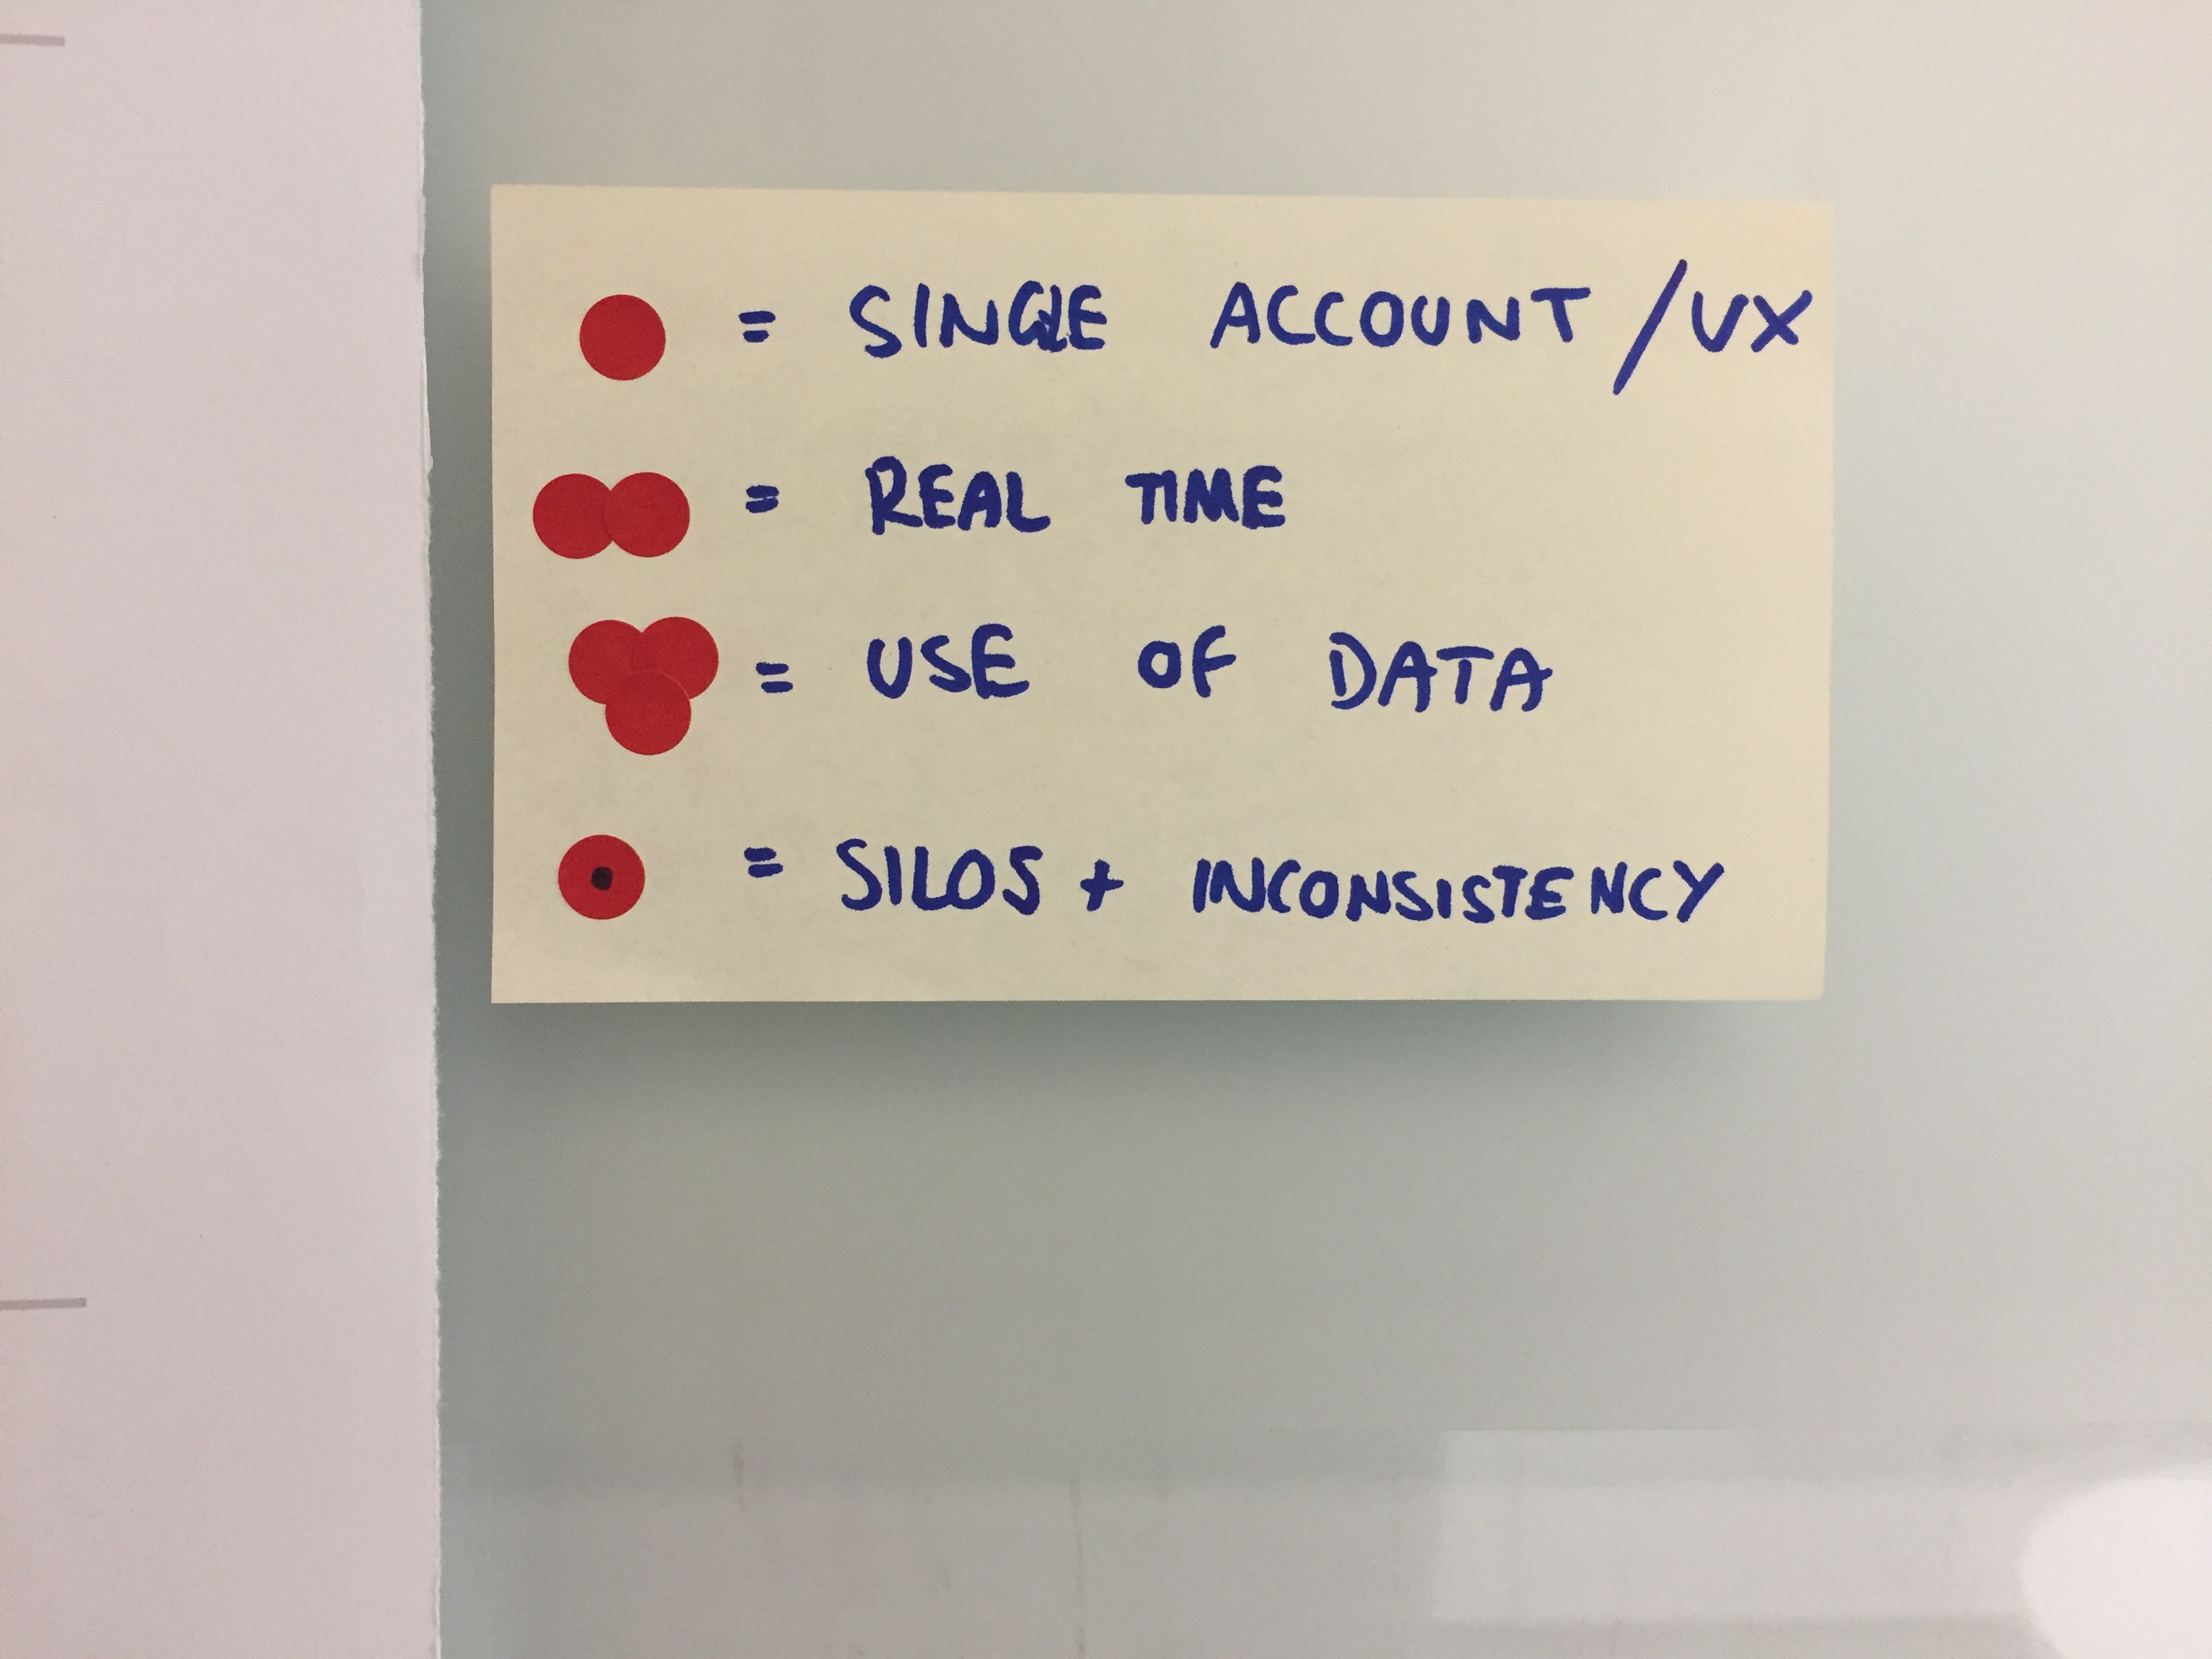 = SINGLE ACCOUNT / UX
= REAL TIME
= USE OF DATA
= SILOS + INCONSISTENCY